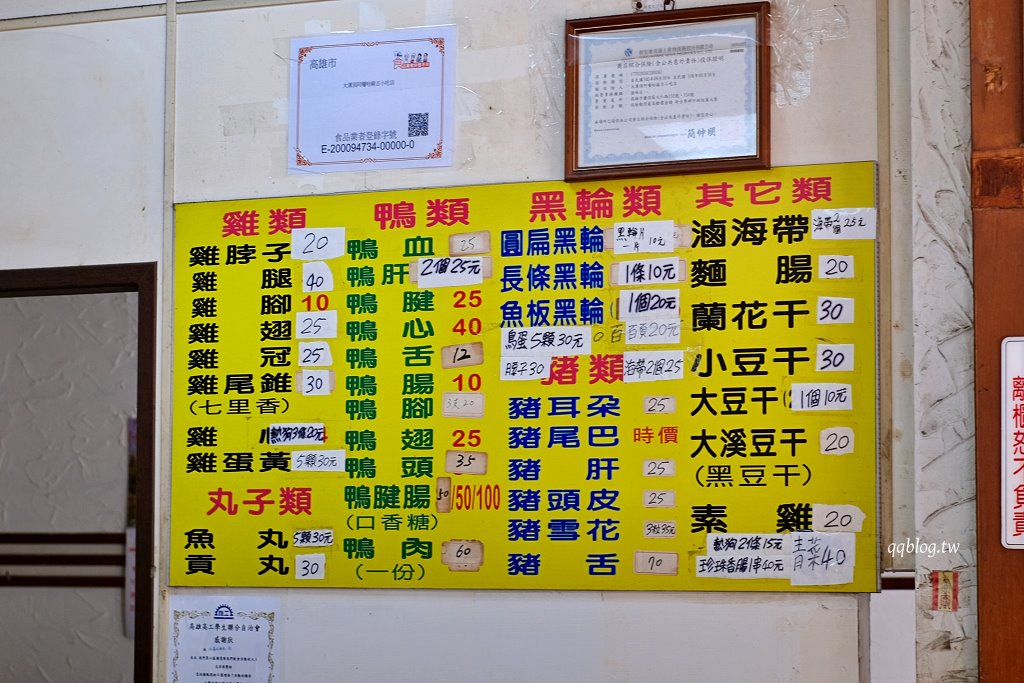 高雄市
食品業者登錄字號
E-200094734-00000-0
簡仲明
雞類
雞脖子 20
雞腿 40
雞腳 10
雞翅 25
雞冠 25
雞尾錐 30
(七里香)
雞 熱狗3條20元
雞蛋黃 5顆30元
丸子類
魚丸 5顆30元
貢丸 30
鴨類
鴨血 25
鴨肝 2個25元
鴨腱 25
鴨心 40
鴨舌 12
鴨腸 10
鴨腳 3支20
鴨翅 25
鴨頭 35
鴨腱腸 50/50/100
(口香糖)
鴨肉 60
(一份)
黑輪類
圓扁黑輪 黑輪片一片10元
長條黑輪 1條10元
魚板黑輪 1個20元
鳥蛋5顆30元 百頁20元
脖子30 海帶2個25
豬類
豬耳朵 25
豬尾巴 時價
豬肝 25
豬頭皮 25
豬雪花 3粒35元
豬舌 70
其它類
滷海帶 海帶2個25元
麵腸 20
蘭花干 30
小豆干 30
大豆干 1個10元
大溪豆干 20
(黑豆干)
素雞 20
熱狗2條15元
珍珠香腸1串40元
40
qqblog.tw
離櫃恕不負責
高雄高工學生聯合自治會
感謝狀